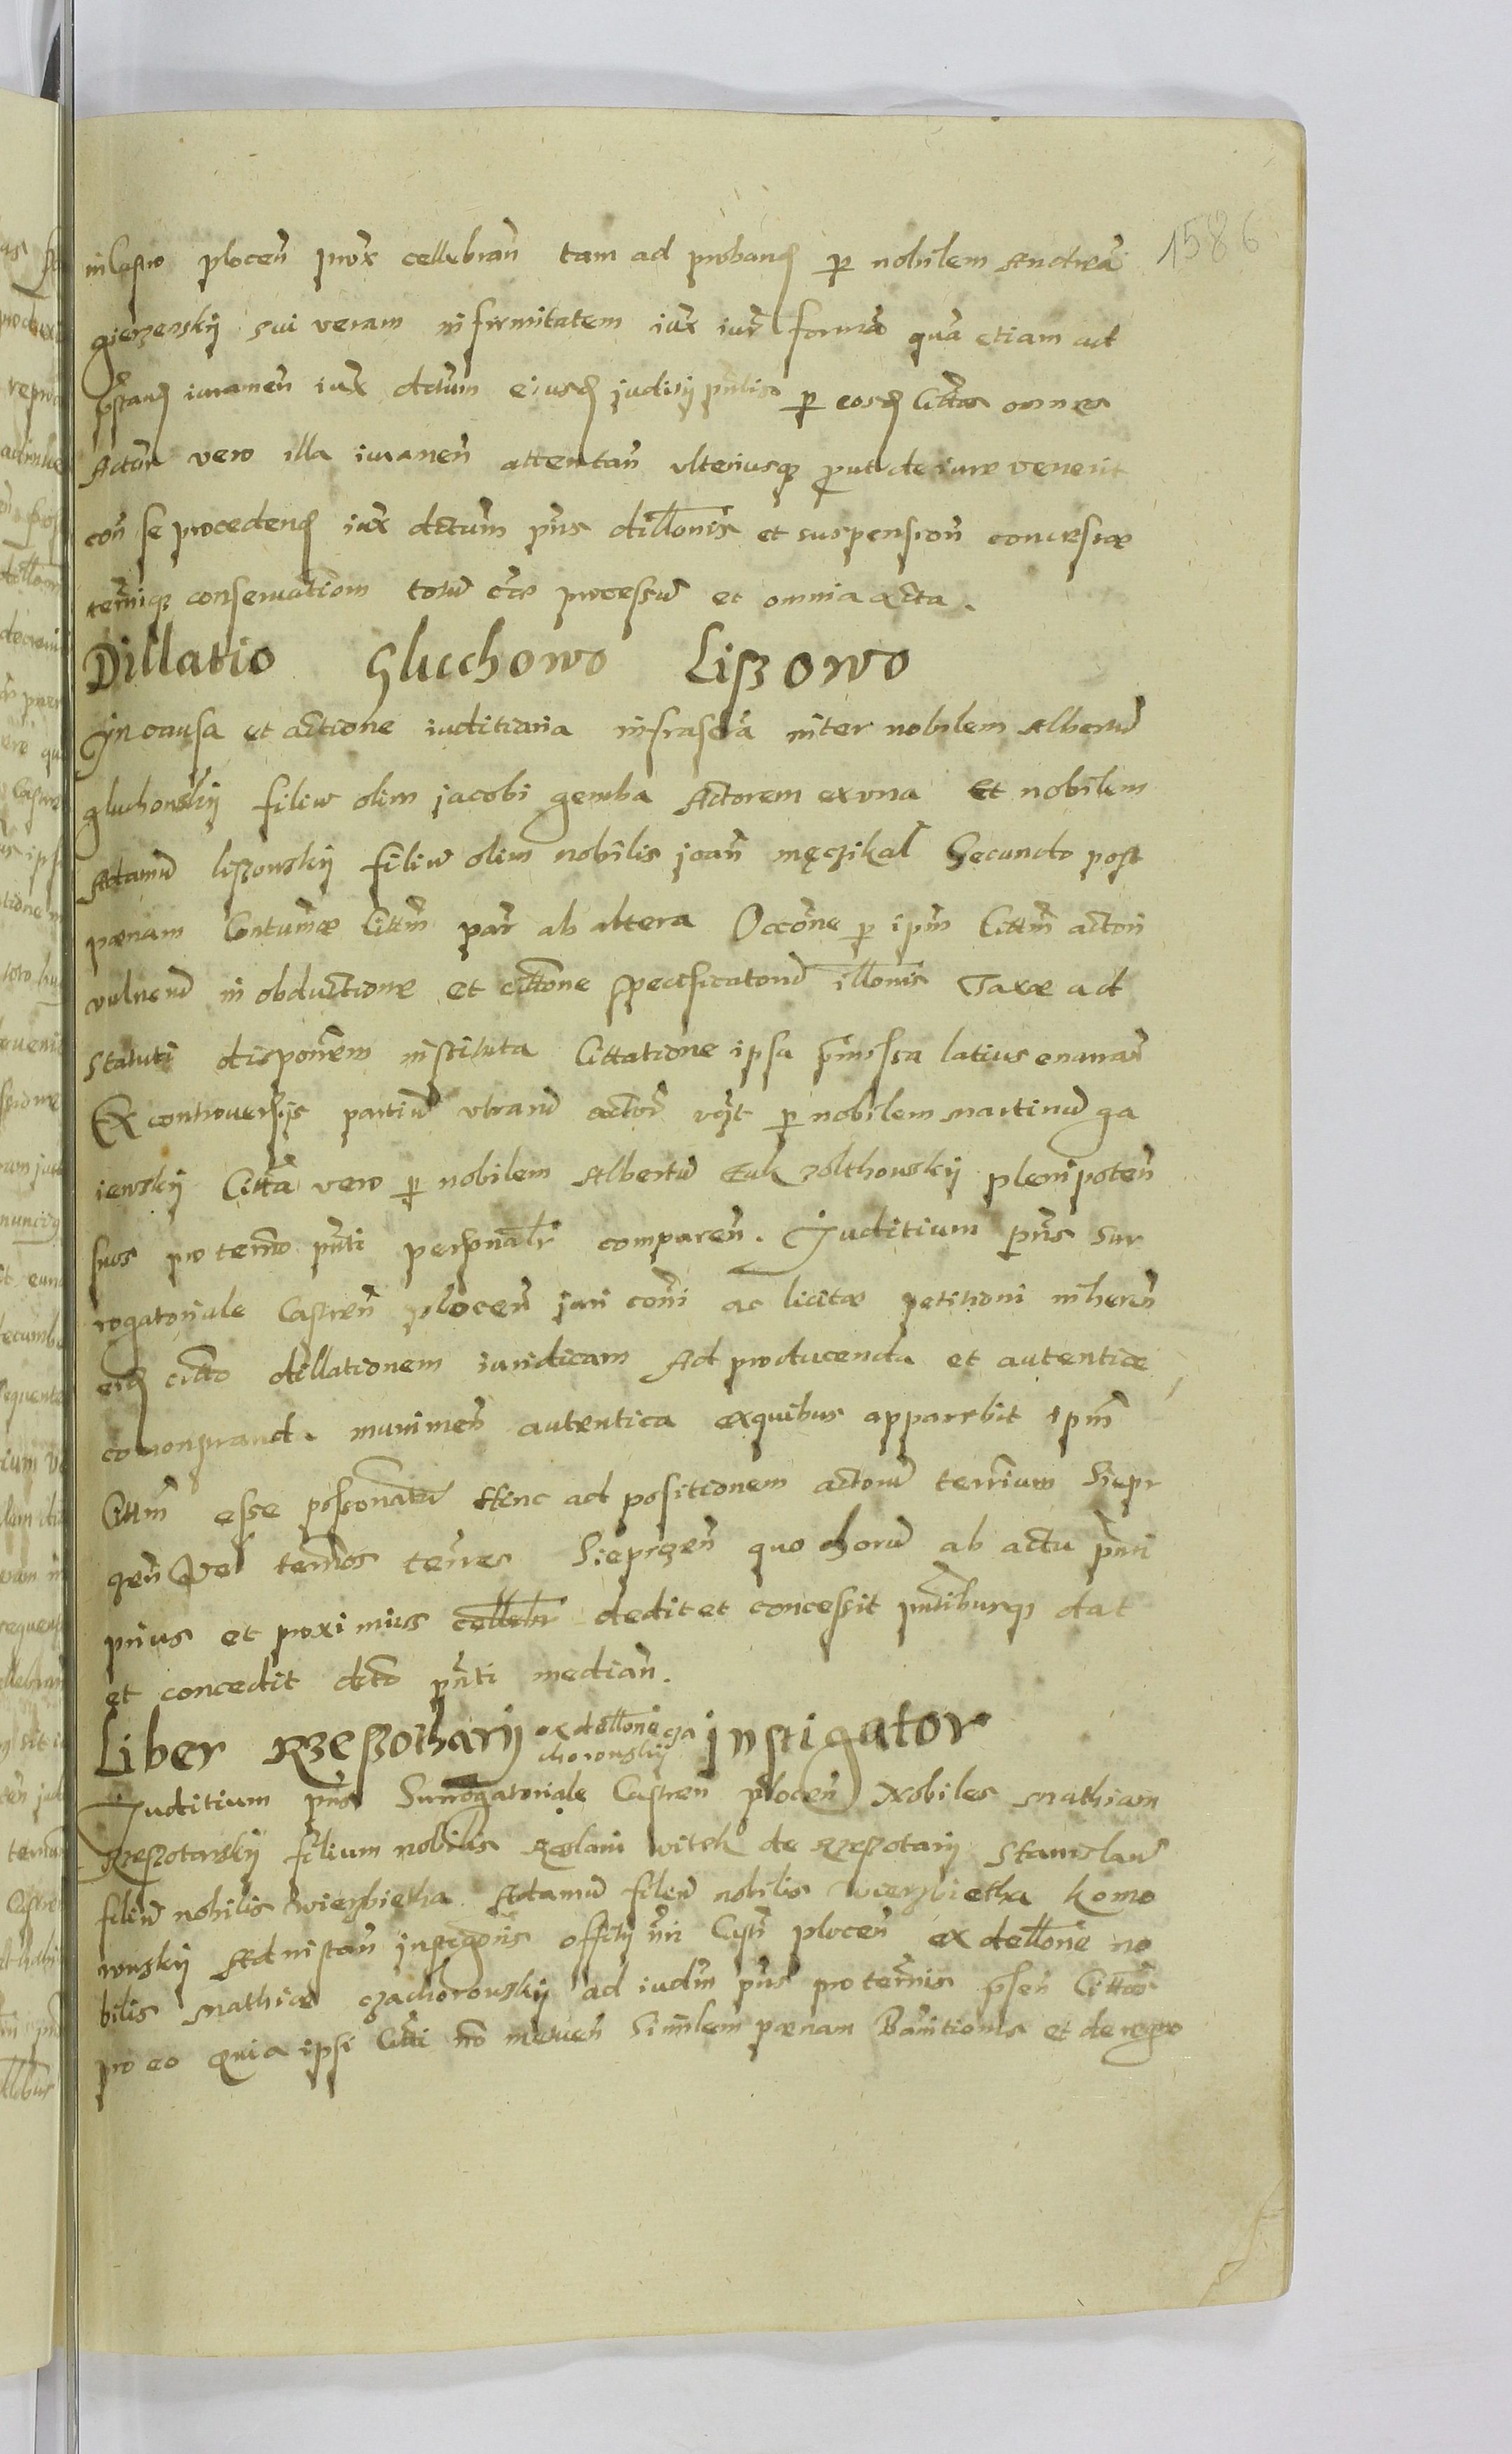 1586
in Castro plocen̄ prox̄ cellebran̄ tam ad proband per nobilem Andreā
gierzewskij sui veram infirmitatem iux̄ iur̄ formā quā etiam ad
pr̄stand iuramen̄ iux̄ dctum eiusd judicij pn̄tis per eosd Cittōs omnes
Actor̄ vero illa iuramen̄ attentan̄ vlteriusq prout de iure venerit
con̄ se procedend iux̄ dctum pn̄s dillōnis et suspension̄ concessæ
termīq conservatiom totū cæ processū et omnia acta.
Dillatio Gluchowo Liszowo
Jn causa et actione iuditiaria infrascrā inter nobilem Albertū
gluchowskij filiū olim jacobi gemba Actorem ex vna Et nobilem
Adamū liszowskij filiū olim nobilis joan̄ męczikal Secundo post
pœnam Contumæ Cittm̄ par̄ ab altera Occōne per ipm̄ Cittm̄ actori
vulnerū in obductione et cittōne specificatorū illōnis Taxæ ad
statuti disponem̄ instituta Cittatione ipsa prm̄issa latius enarrat̄
Ex controuersijs partiū vtrarū actor̄ vizt per nobilem martinū ga
iewskij Cittā vero per nobilem Albertū Euk zolthowskij plenipoten̄
suos pro termō pn̄ti personalr̄ comparen̄. Juditium pn̄s sur
rogatoriale Castren̄ plocen̄ juri cōni ac licitæ petitioni inheren̄
eid cittō dillationem iuridicam Ad producenda et autentice
comonstrand. munimen̄ autentica ex quibus apparebit ipm̄
Cittm̄ esse possonatū Hinc ad positionem actorū terr̄ium Siepr
cen̄ Vel termōs terr̄es Sieprcen̄ quo horū ab actu pn̄ti
prius et proximius cellebr dedit et concessit pn̄tibusq dat
et concedit dcto pn̄ti median̄.
Liber Rzeszotharij ex dellōne cza
chorowskij instigator
Juditium pn̄s Surrogatoriale Castren̄ plocen̄ Nobiles Mathiam
Rzeszotarskij filium nobilis Reslai witek de Rzeszotarij Stanislaū
filiū nobilis wierzbietha Adamū filiū nobilis wierzbietha komo
rowskij Ad instan̄ instigōris officij nr̄i Castr̄ plocen̄ ex dellōne no
bilis Mathiæ czachorowskij ad iudm̄ pn̄s pro termīs prsen̄ Cittōs
pro eo quia ipsi Citti nō metuen̄ Similem pœnam Banitionis et de regno